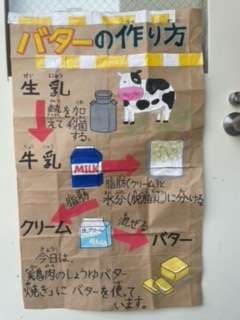 バターの作り方
生乳
せい にゅう
熱を加
えて殺菌する。
牛乳
ぎゅう にゅう
MILK
脂肪(クリーム)と
水分(脱脂乳)に分ける
脂肪
クリーム
生クリーム
混ぜる
バター
今日は、
「鶏肉のしょうゆバター
焼き」に バターを使って
います。